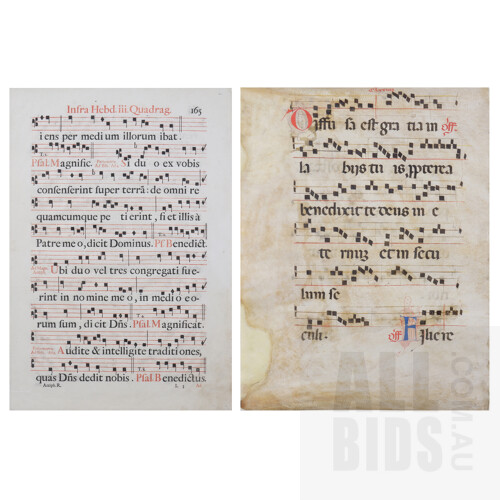 Infra Hebd. iii. Quadrag. 165
iens per medium illorum ibat.
Psal. Magnific. Si du o ex vobis
consenserint super terrã: de omni re
quamcumque pe tierint, fiet illis à
Patre meo, dicit Dominus. Ps Benedict.
Ubi du o vel tres congregati fue-
rint in nomine me o, in medio e o-
rum sum, dicit Dñs. Psal. Magnificat.
Audite & intelligite traditiones,
quas Dñs dedit nobis. Psal. Benedictus.
Antiph. R. S. 2
Diffu sa est gra tia in off.
la bijs tu is, ppterea
benedixit te deus in e
ter num et in secu
lum se
culi. off. Filie re
ALL
BIDS
.COM.AU